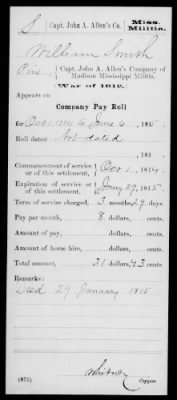 S Capt. John A. Allen's Co. Miss. Militia.
William Smith
Priv, Capt. John A. Allen's Company of Madison Mississippi Militia.
(War of 1812.)
Appears on
Company Pay Roll
for Oct 1 1814 to June 6, 1815.
Roll dated Not dated
, 181 .
Commencement of service or of this settlement. Oct 1, 1814.
Expiration of service or of this settlement. Jany 29, 1815.
Term of service charged, 3 months, 29 days.
Pay per month, 8 dollars, cents.
Amount of pay, dollars, cents.
Amount of horse hire, dollars, cents.
Total amount, 31 dollars, 43 cents.
Remarks:
Died 29 January 1815
(572) Copyist.